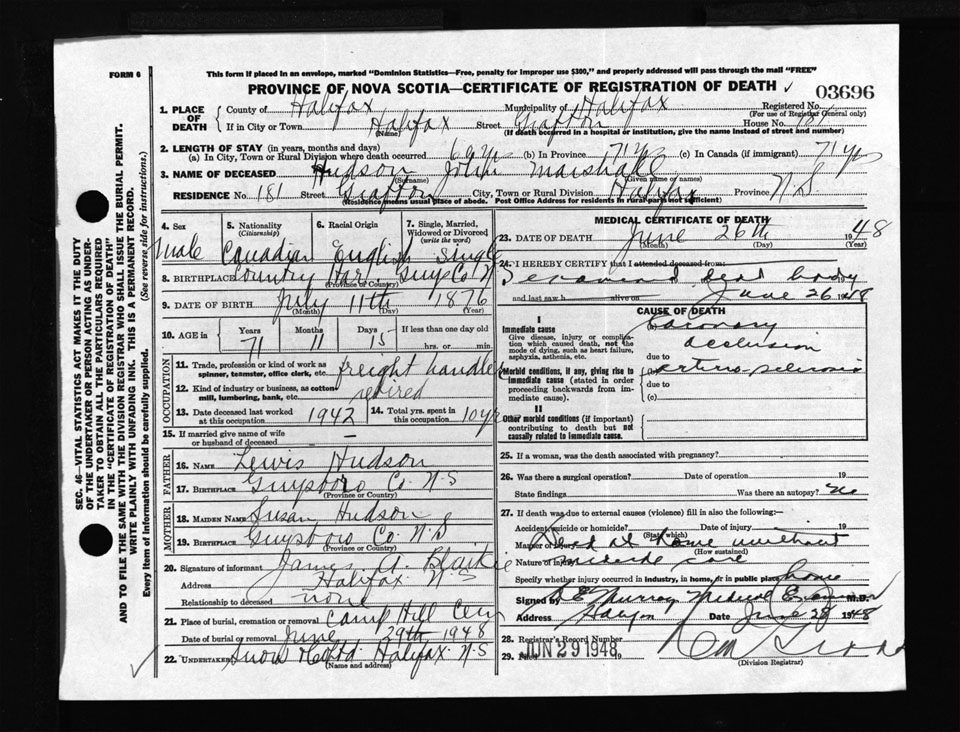 FORM 6
This form if placed in an envelope, marked "Dominion Statistics—Free, penalty for improper use $300," and properly addressed will pass through the mail "FREE"
PROVINCE OF NOVA SCOTIA—CERTIFICATE OF REGISTRATION OF DEATH ✓ 03696
1. PLACE OF DEATH
County of Halifax Municipality of Halifax Registered No.
(For use of Registrar General only)
If in City or Town Halifax Street Grafton House No. 181
(Name) (If death occurred in a hospital or institution, give the name instead of street and number)
2. LENGTH OF STAY (in years, months and days)
(a) In City, Town or Rural Division where death occurred (b) In Province 71 yrs (c) In Canada (if immigrant) 71 yrs
3. NAME OF DECEASED Hudson John Marshall
(Surname) (Given name or names)
RESIDENCE No. 181 Street Grafton City, Town or Rural Division Halifax Province N.S
(Residence means usual place of abode. Post Office Address for residents in rural parts not sufficient)
4. Sex 5. Nationality (Citizenship) 6. Racial Origin 7. Single, Married, Widowed or Divorced (write the word)
Male Canadian English Single
8. BIRTHPLACE Country Har. Guys Co N.S
(Province or Country)
9. DATE OF BIRTH July 11th 1876
(Month) (Day) (Year)
10. AGE in Years Months Days If less than one day old
71 11 15 hrs. or min.
OCCUPATION
11. Trade, profession or kind of work as spinner, teamster, office clerk, etc. freight handler
12. Kind of industry or business, as cotton mill, lumbering, bank, etc. retired
13. Date deceased last worked at this occupation 1942 14. Total yrs. spent in this occupation 10 yrs
15. If married give name of wife or husband of deceased —
FATHER
16. NAME Lewis Hudson
17. BIRTHPLACE Guysboro Co. N.S
(Province or Country)
MOTHER
18. MAIDEN NAME Susan Hudson
19. BIRTHPLACE Guysboro Co. N.S
(Province or Country)
20. Signature of informant James A. Blaikie
Address Halifax N.S
Relationship to deceased none
21. Place of burial, cremation or removal Camp Hill Cem
Date of burial or removal June 29th 1948
22. UNDERTAKER Snow & Co Ltd Halifax N.S
(Name and address)
MEDICAL CERTIFICATE OF DEATH
23. DATE OF DEATH June 26th 1948
(Month) (Day) (Year)
24. I HEREBY CERTIFY that I attended deceased from:
I examined dead body
and last saw h alive on June 26 1948
CAUSE OF DEATH
I
Immediate cause
Give disease, injury or complication which caused death, not the mode of dying, such as heart failure, asphyxia, asthenia, etc.
(a) Coronary occlusion
due to
Morbid conditions, if any, giving rise to immediate cause (stated in order proceeding backwards from immediate cause).
(b) arterio sclerosis
due to
(c)
II
Other morbid conditions (if important) contributing to death but not causally related to immediate cause.
25. If a woman, was the death associated with pregnancy?
26. Was there a surgical operation? Date of operation 19
State findings Was there an autopsy? No
27. If death was due to external causes (violence) fill in also the following:
Accident, suicide or homicide? Date of injury 19
(State which)
Manner of injury Died at home without
(How sustained)
Nature of injury medical care
Specify whether injury occurred in industry, in home, or in public place home
Signed by Murray Medical Examiner M.D.
Address Halifax Date June 28 1948
28. Registrar's Record Number
29. Filed JUN 29 1948 19
(Division Registrar)
SEC. 46—VITAL STATISTICS ACT MAKES IT THE DUTY
OF THE UNDERTAKER OR PERSON ACTING AS UNDER-
TAKER TO OBTAIN ALL THE PARTICULARS REQUIRED
IN THE "CERTIFICATE OF REGISTRATION OF DEATH"
AND TO FILE THE SAME WITH THE DIVISION REGISTRAR WHO SHALL ISSUE THE BURIAL PERMIT.
WRITE PLAINLY WITH UNFADING INK. THIS IS A PERMANENT RECORD.
Every item of information should be carefully supplied. (See reverse side for instructions.)